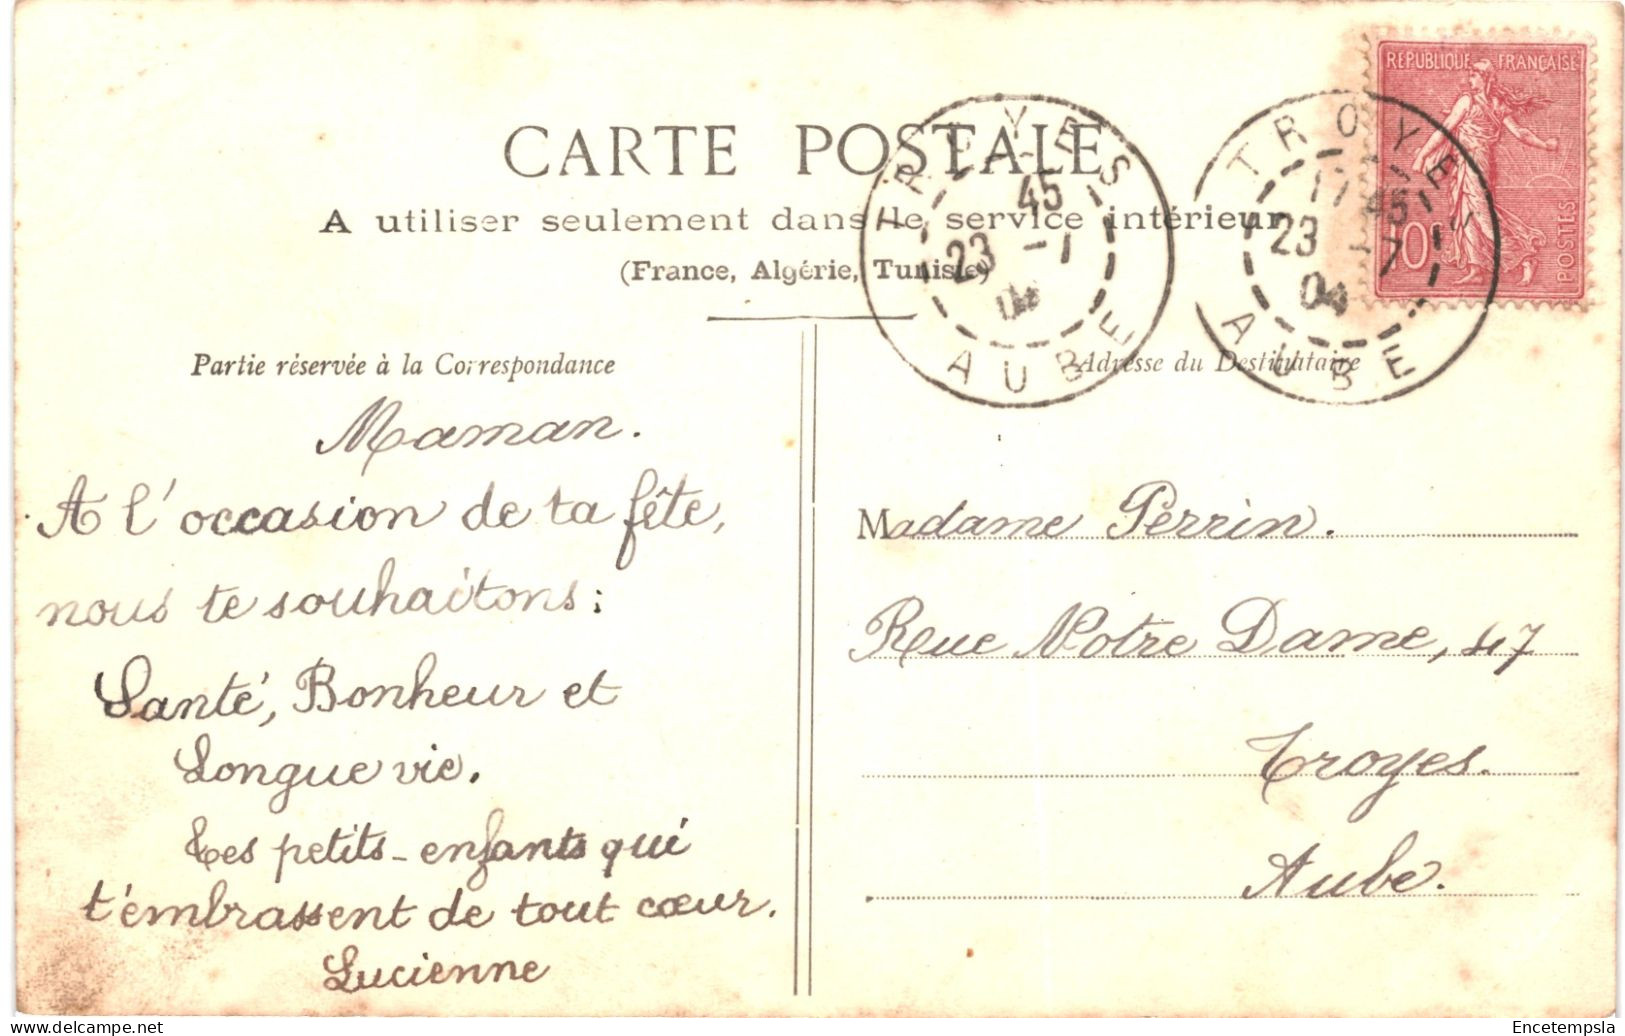 RÉPUBLIQUE FRANÇAISE
10
POSTES
CARTE POSTALE
A utiliser seulement dans le service intérieur
(France, Algérie, Tunisie)
TROYES
45
23 -
04
AUBE
TROYES
17 45
23 - 7
04
AUBE
Partie réservée à la Correspondance
Maman.
A l'occasion de ta fête,
nous te souhaitons:
Santé, Bonheur et
Longue vie.
Tes petits-enfants qui
t'embrassent de tout cœur.
Lucienne
Adresse du Destinataire
Madame Perrin.
Rue Notre Dame, 47
Troyes.
Aube.
delcampe.net
Encetempsla